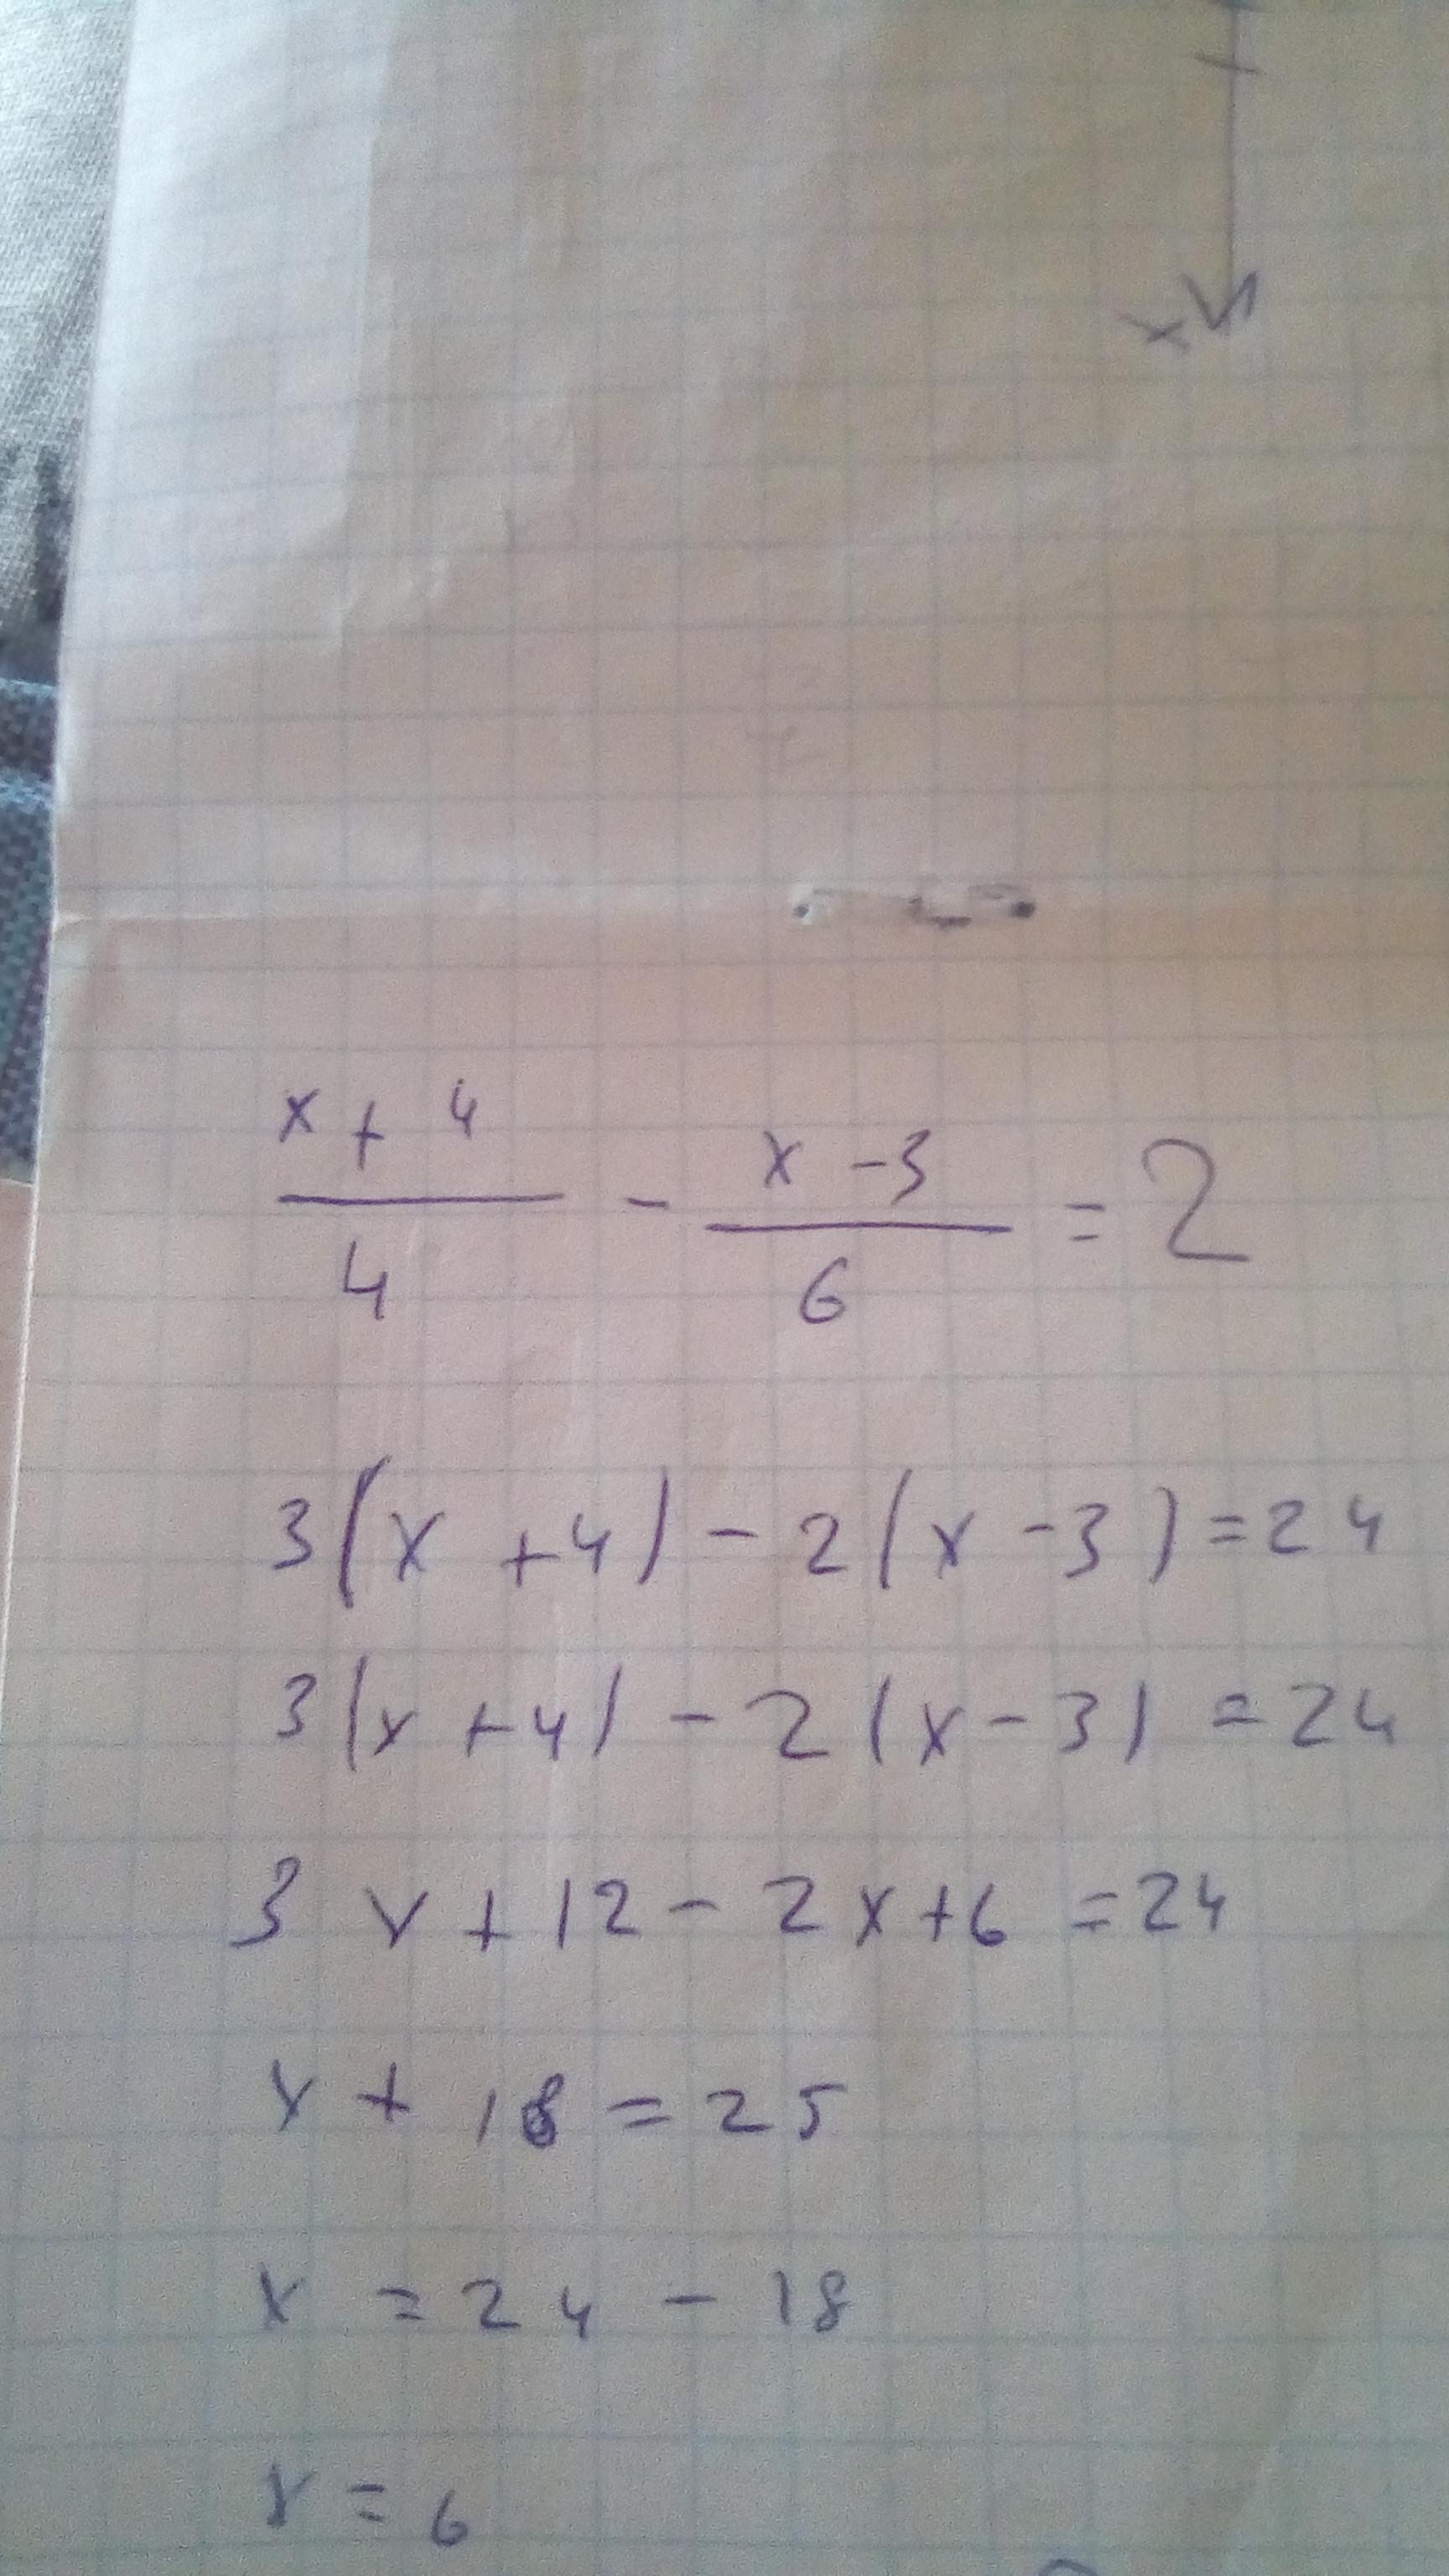 x
x + 4 / 4 - x - 3 / 6 = 2
3(x + 4) - 2(x - 3) = 24
3(x + 4) - 2(x - 3) = 24
3x + 12 - 2x + 6 = 24
x + 18 = 25
x = 24 - 18
x = 6